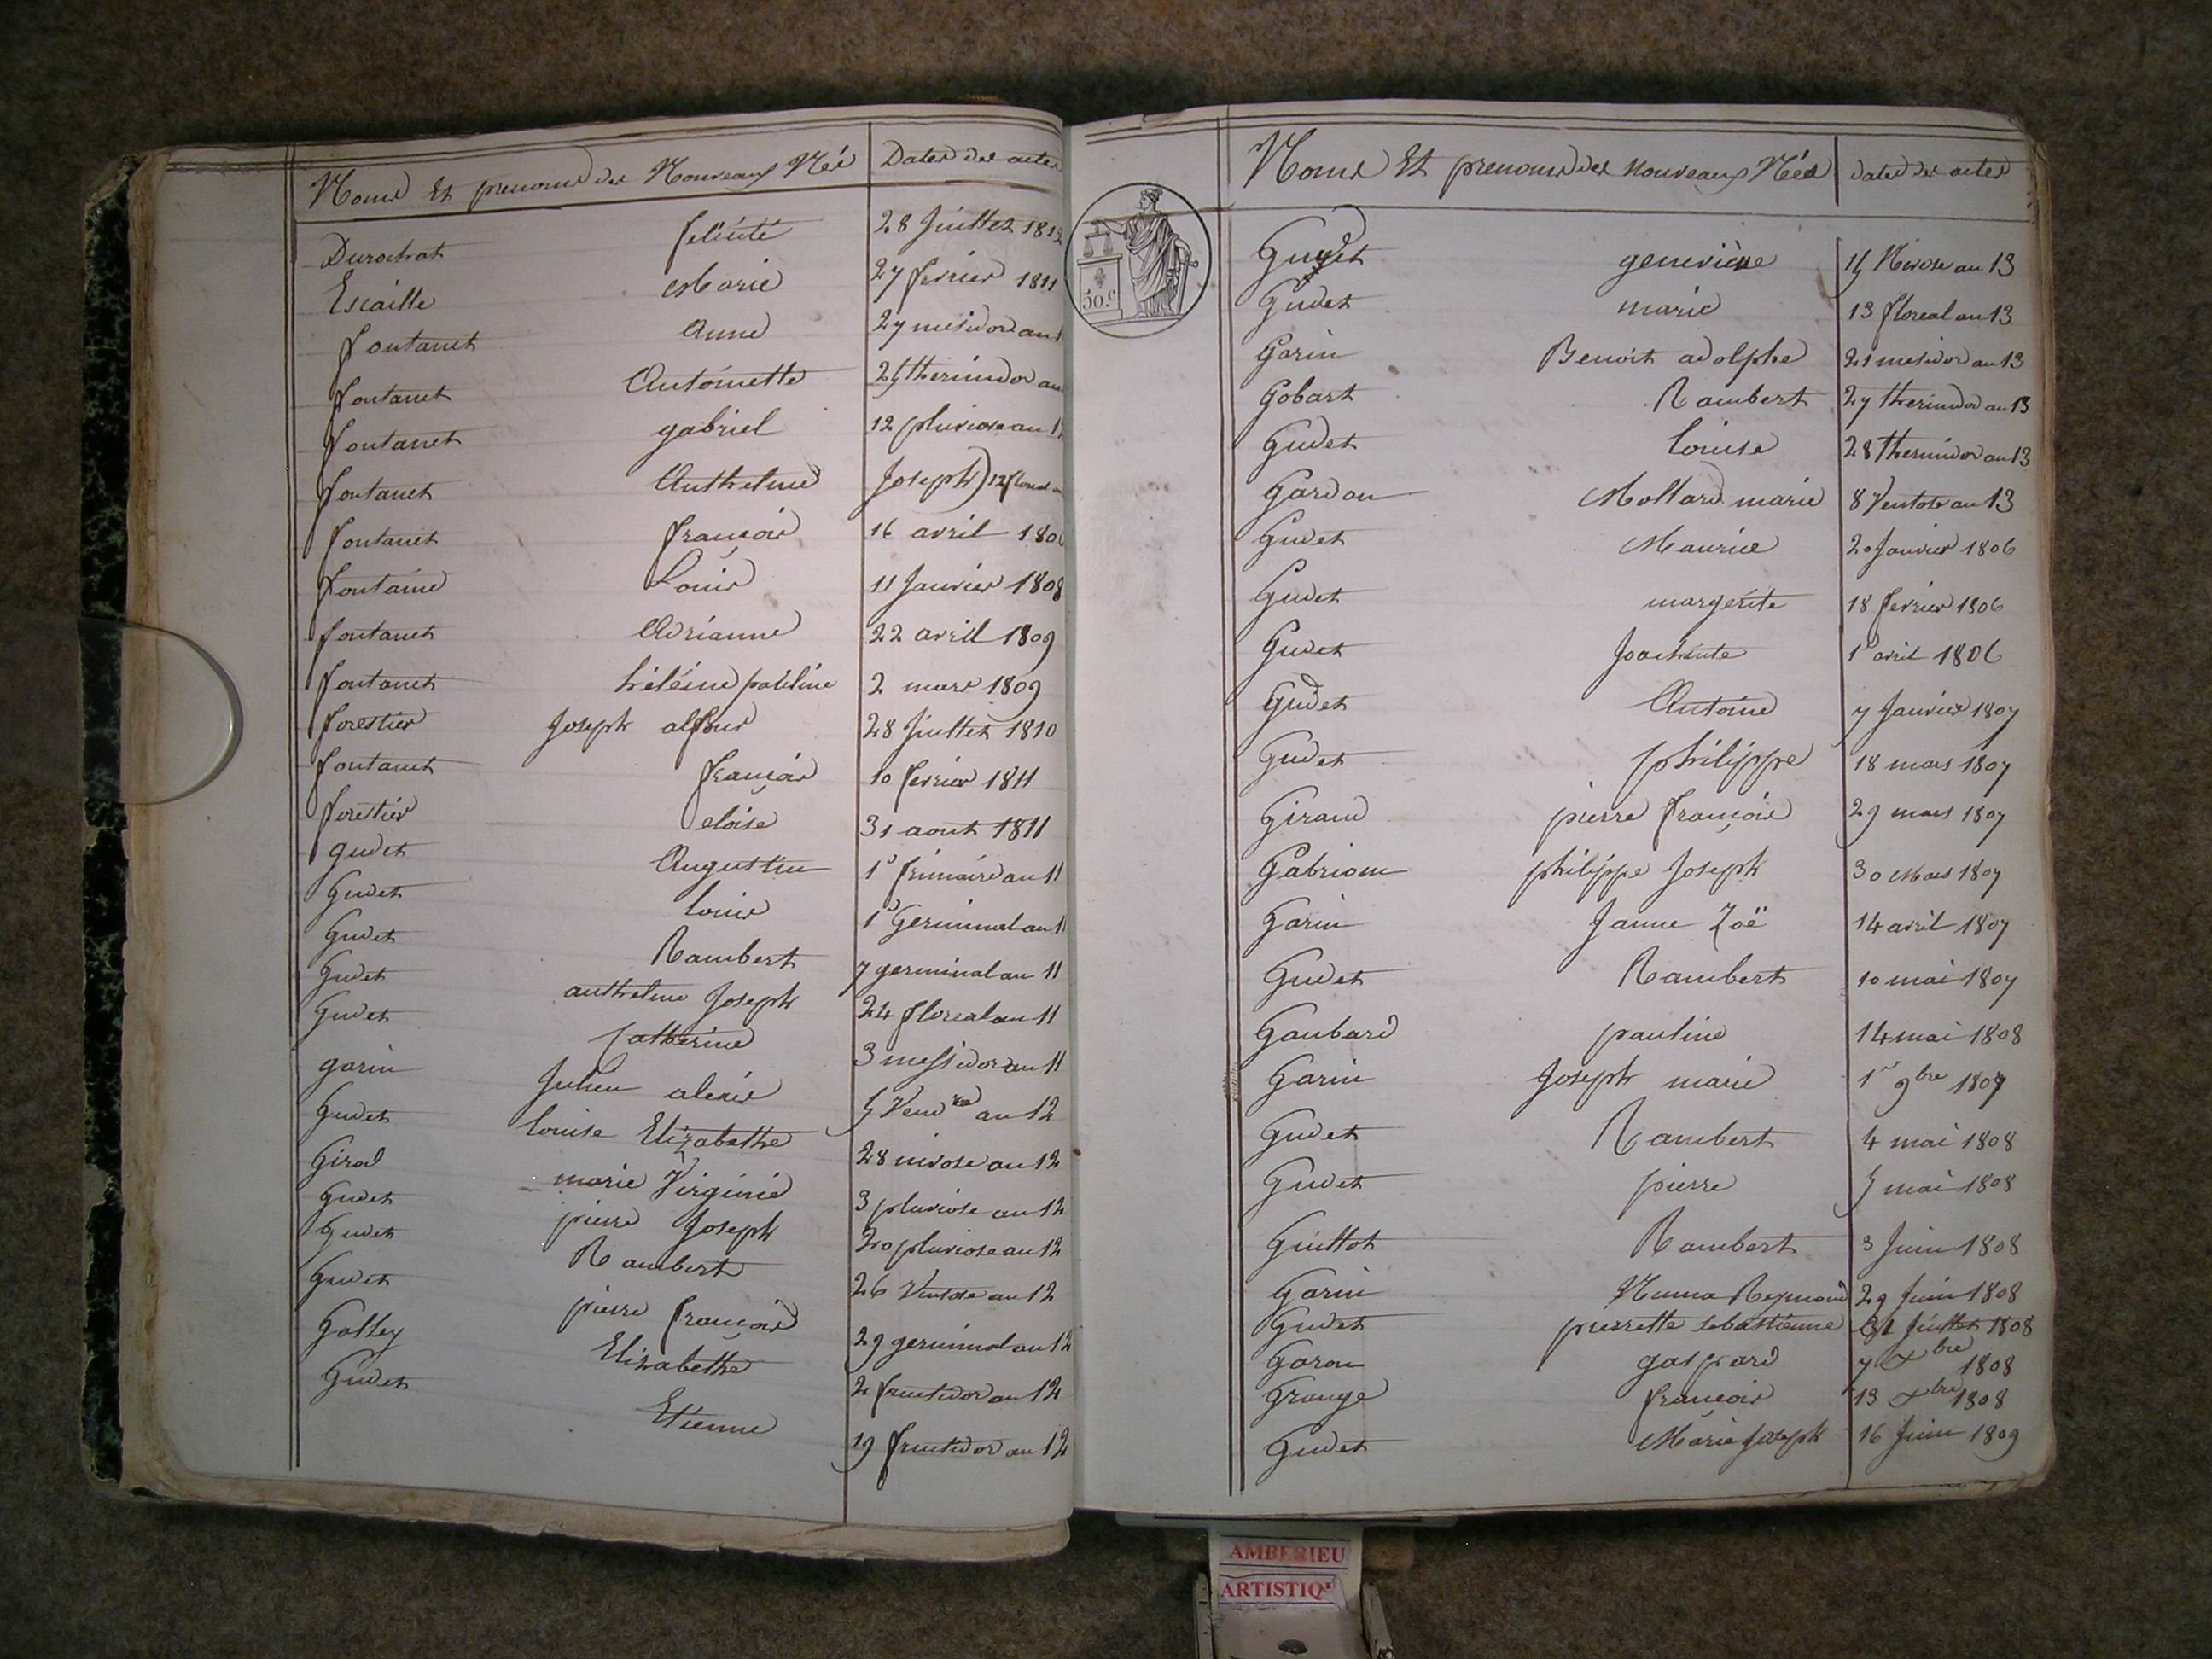 Noms Et prenoms des Nouveaux Nés Dates des actes
Durochat felicité 28 Juillet 1812
Escaille Marie 27 fevrier 1811
fontanet Anne 27 mesidor an
fontanet Antoinette 25 thermidor an
fontanet gabriel 12 pluviose an 1
fontanet Anthelme Joseph) 12 floreal an
fontanet françois 16 avril 180
fontaine Louis 11 Janvier 1808
fontanet Adrianne 22 avril 1809
fontanet héléine pauline 2 mars 1809
forestier Joseph alfons 28 Juillet 1810
fontanet françois 10 fevrier 1811
forestier eloise 31 aout 1811
gudet Augustin 1r frimaire an 11
Gudet louis 1r Germinal an 11
Gudet Rambert 7 germinal an 11
Gudet anthelme Joseph 24 floreal an 11
Gudet catherine 3 messidor an 11
garin Julien alexis 5 Vendre an 12
Gudet louise Elizabethe 28 nivose an 12
Girod marie Virginie 3 pluviose an 12
Gudet pierre Joseph 20 pluviose an 12
Gudet Rambert 26 Ventose an 12
Gudet pierre françois 29 germinal an 12
Galley Elizabethe 2 fructidor an 12
Gudet Etienne 19 fructidor an 12
50.c
Noms Et prenoms des nouveaux Nés dates des actes
Gudet genevieve 15 Nivose an 13
Gudet marie 13 floreal an 13
Garin Benoit adolphe 21 mesidor an 13
Gobart Rambert 27 thermidor an 13
Gudet louise 28 thermidor an 13
Gardon Mollard marie 8 Ventose an 13
Gudet Maurice 20 Janvier 1806
Gudet margerite 18 fevrier 1806
Gudet Joachinte 1r avril 1806
Gudet Antoine 7 Janvier 1807
Gudet philippe 18 mars 1807
Giraud pierre françois 29 mars 1807
Gabrion philippe Joseph 30 Mars 1807
Garin Janne Zoë 14 avril 1807
Gudet Rambert 10 mai 1807
Gaubard pauline 14 mai 1808
Garin Joseph marie 1r 9bre 1807
Gudet Rambert 4 mai 1808
Gudet pierre 5 mai 1808
Guillot Rambert 3 Juin 1808
Garin Numa Reymond 29 Juin 1808
Gudet pierrette sebastienne 31 Juillet 1808
Garon gaspard 7 Xbre 1808
Grange françois 13 Xbre 1808
Gudet Marie Joseph 16 Juin 1809
AMBERIEU
ARTISTIQ